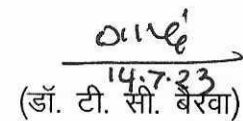 14.7.23
(डॉ. टी. सी. बैरवा)